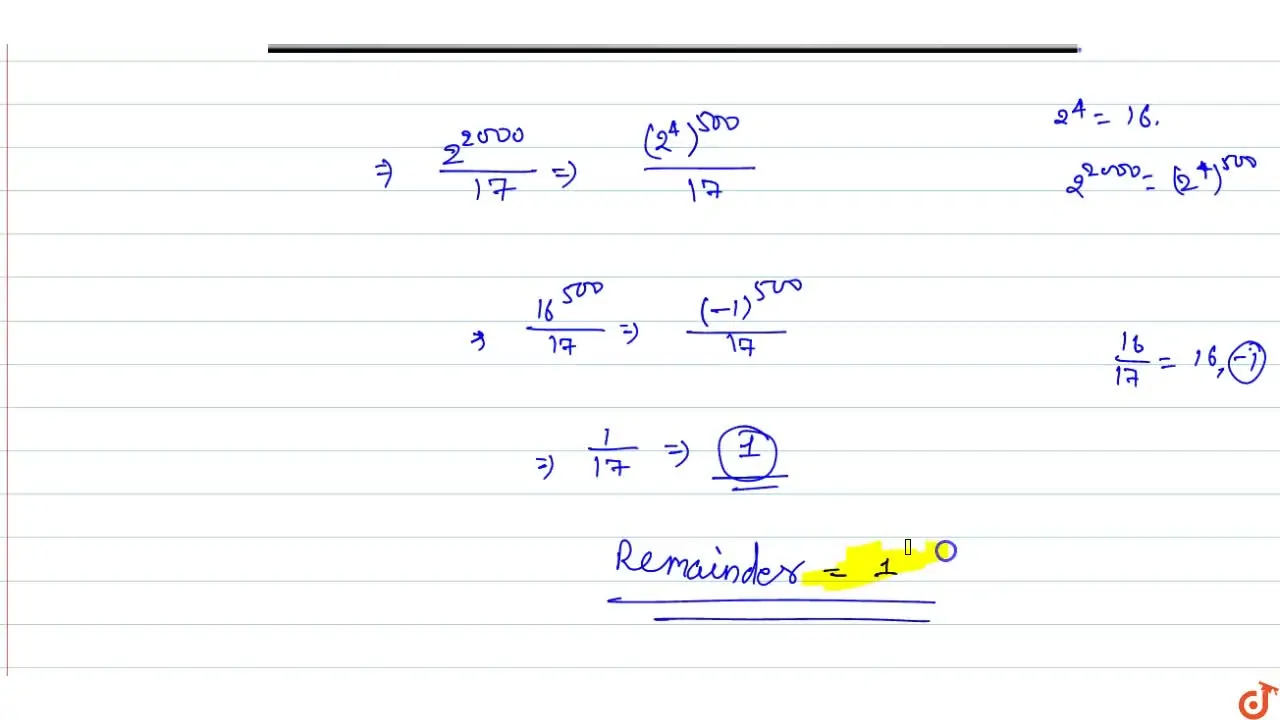 ⇒ 2^2000/17 ⇒ (2^4)^500/17
2^4 = 16.
2^2000 = (2^4)^500
⇒ 16^500/17 ⇒ (-1)^500/17
16/17 = 16, -1
⇒ 1/17 ⇒ 1
Remainder = 1